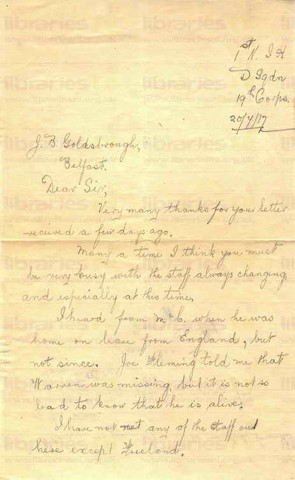 1st N. I. H
D Sqdn
19th Corps.
20/7/17
J. B. Goldsbrough,
Belfast.
Dear Sir;
Very many thanks for your letter
received a few days ago.
Many a time I think you must
be very busy with the staff always changing
and especially at this time.
I heard from McC. when he was
home on leave from England, but
not since. Joe Fleming told me that
Warren was missing, but it is not so
bad to know that he is alive.
I have not met any of the staff out
here except Freeland.
libraries